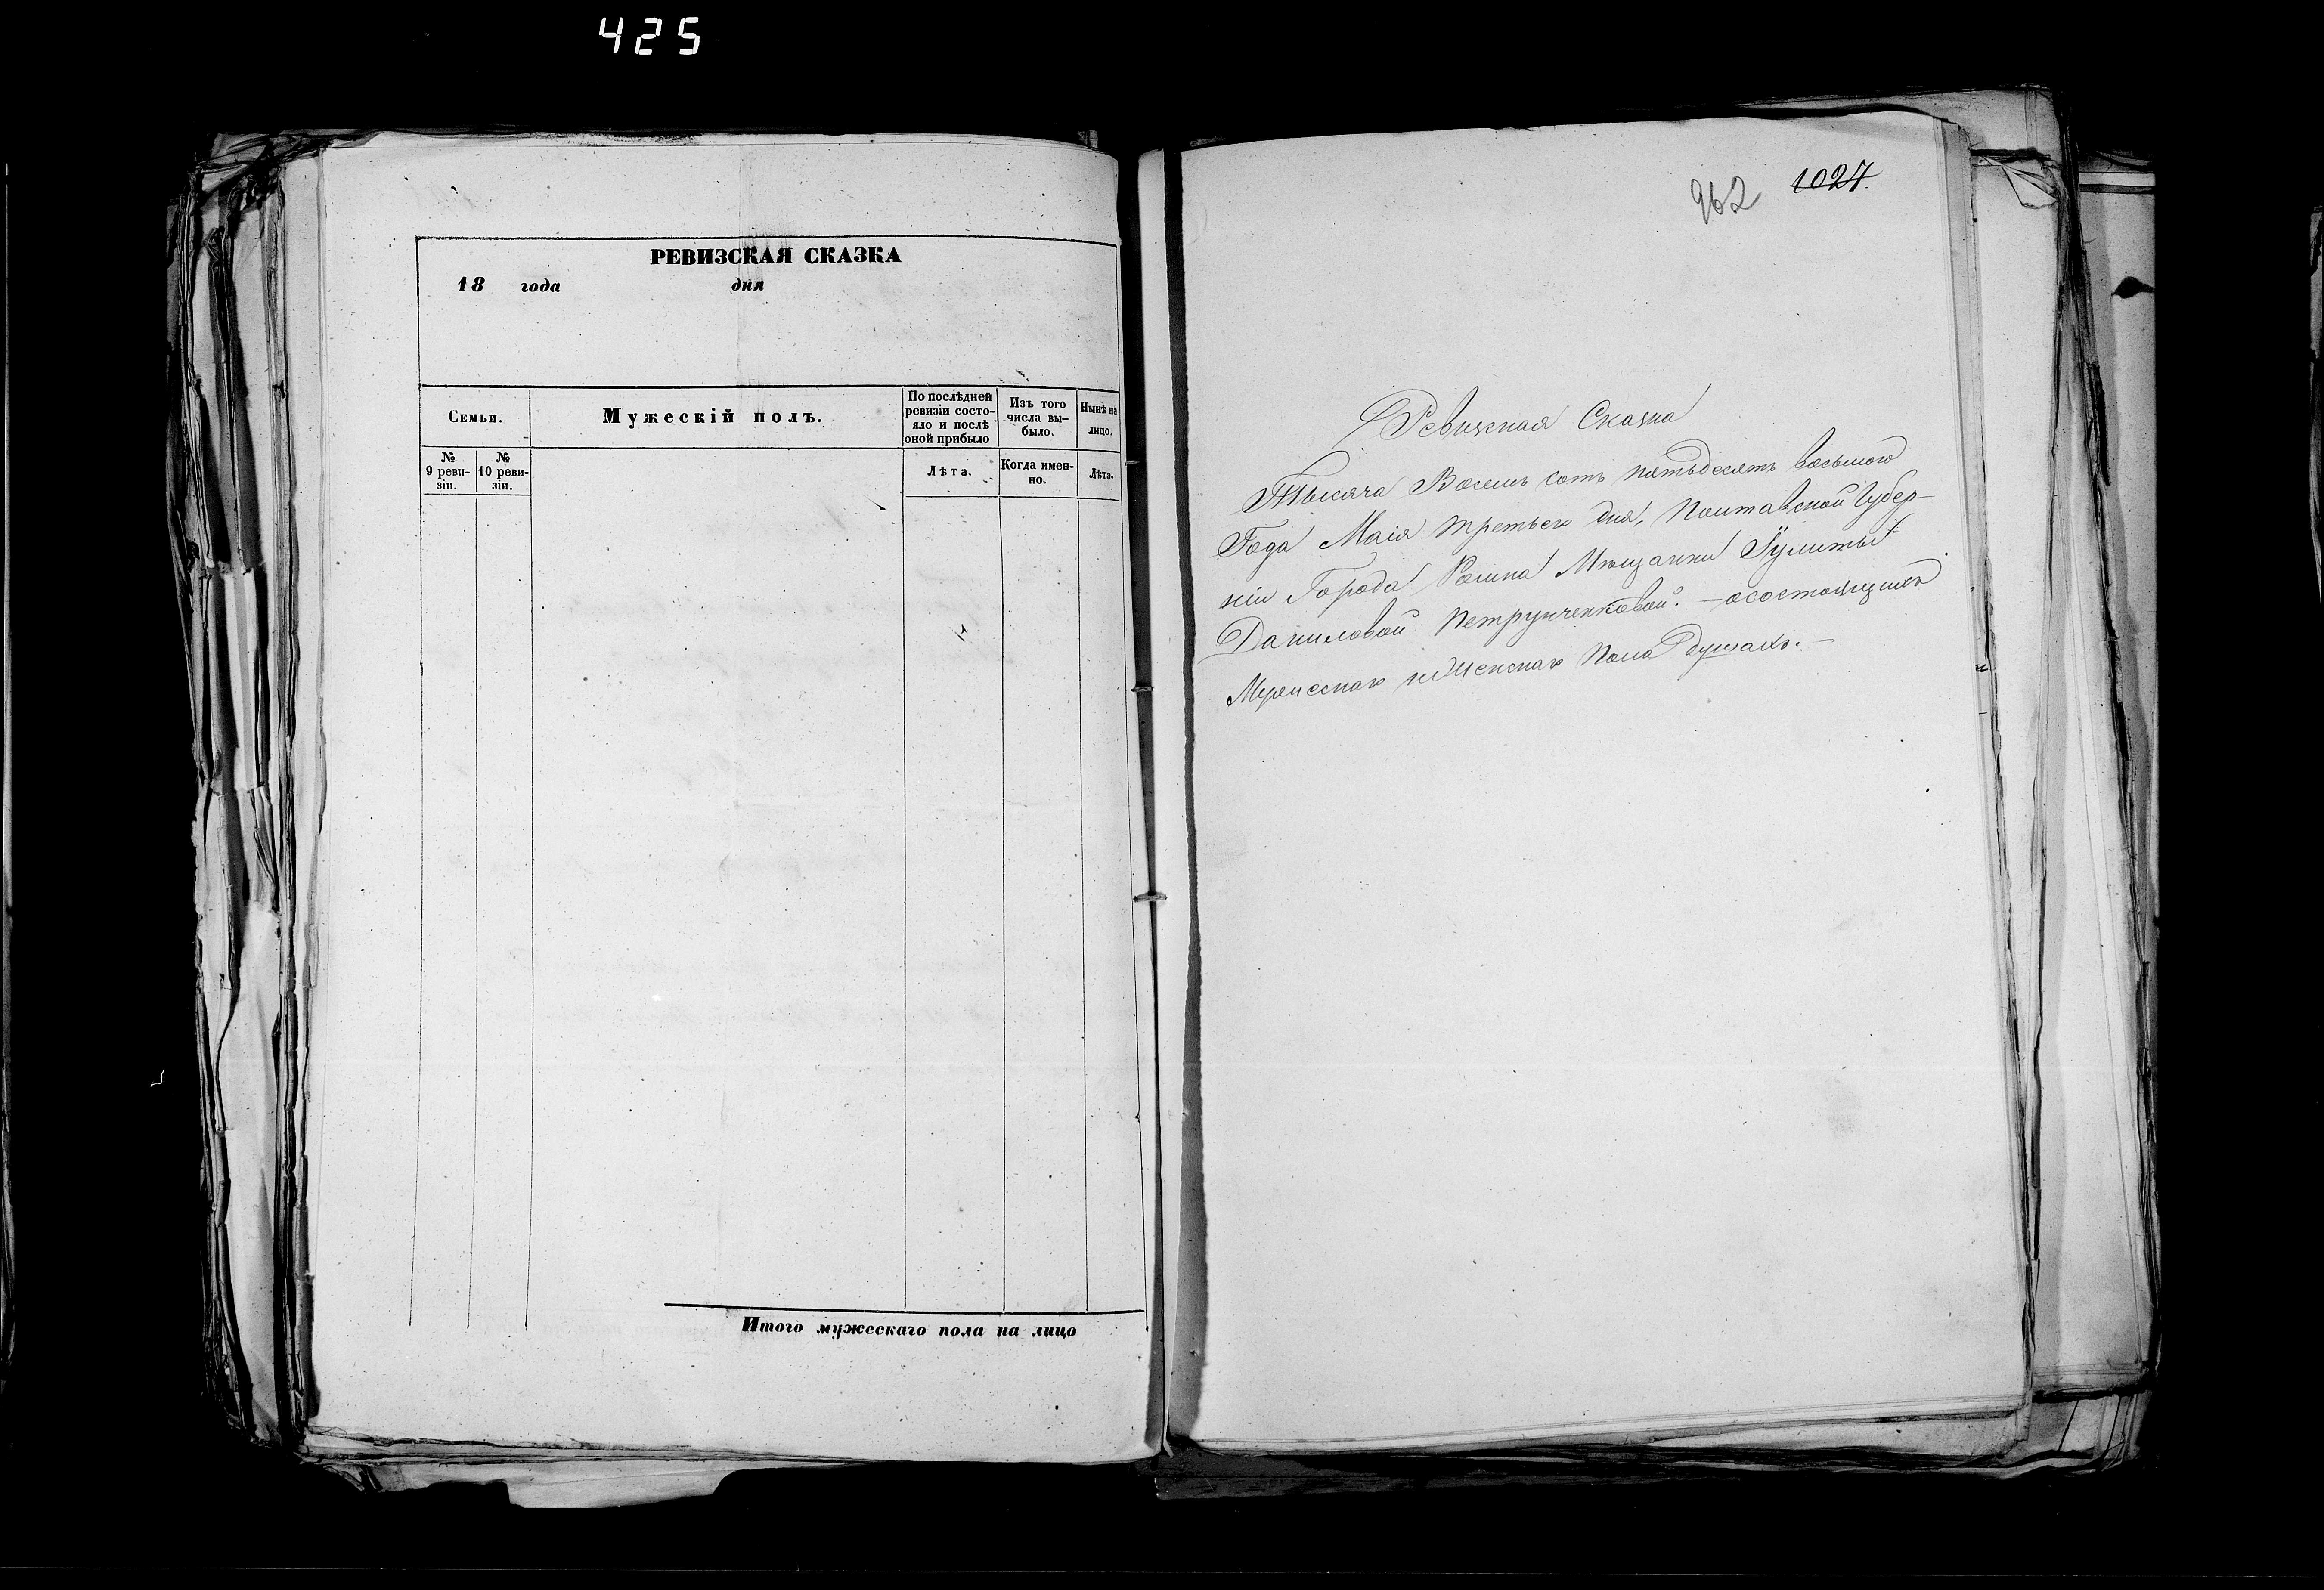 425
РЕВИЗСКАЯ СКАЗКА
18 года дня
Семьи.
Мужескій полъ.
По послѣдней
ревизіи состо-
яло и послѣ
оной прибыло
Изъ того
числа вы-
было.
Нынѣ на
лицо.
№
9 реви-
зіи.
№
10 реви-
зіи.
Лѣта.
Когда имен-
но.
Лѣта.
Итого мужескаго пола на лицо
962 1027.
Ревизкая Сказка
Тысяча Восемь сотъ пятьдесятъ восьмого
Года Маія третьего дня, Полтавской Губер-
ніи Города Ромна Мѣщанки Улиты
Даниловой Петрунченковой. — осостоящихъ
Мужескаго и Женскаго Пола душахъ. —